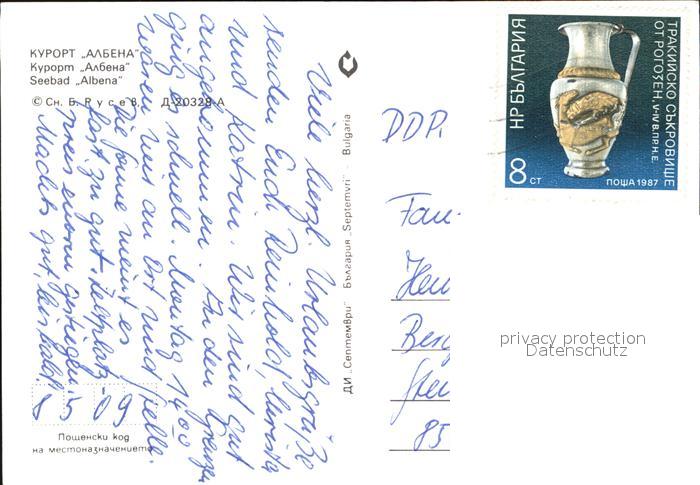 КУРОРТ „АЛБЕНА"
Курорт „Албена"
Seebad „Albena"
© Сн. Б. Русев, Д-20328-А
Viele herzl. Urlaubsgrüße
senden Euch Reinhold, Christa
und Katrin. Wir sind gut
angekommen. An den Grenzen
ging es schnell. Montag 14 00
waren wir an Ort und Stelle.
Die Sonne meint es
fast zu gut. Zeltplatz
Machts gut, bis bald!
8 5 09
Пощенски код
на местоназначението
ДИ „Септември" България „Septemvri" Bulgaria
DDR
Fam
85
НР БЪЛГАРИЯ
8 СТ
ПОЩА 1987
ТРАКИЙСКО СЪКРОВИЩЕ
ОТ РОГОЗЕН, V-IV В. ПР. Н. Е.
privacy protection
Datenschutz